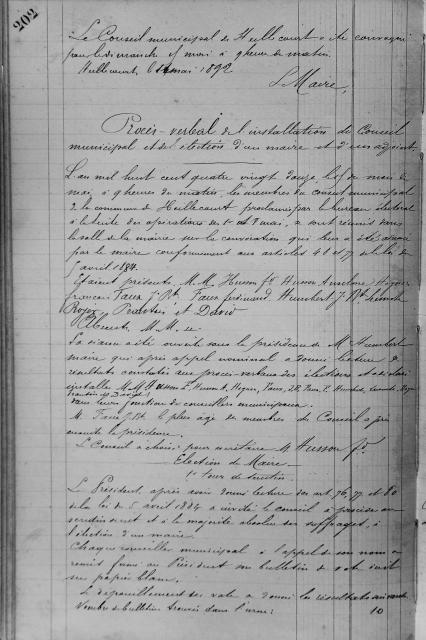 202
Le Conseil municipal de Huillecourt a été convoqué
pour le dimanche 15 mai à 9 heures du matin.
Huillecourt, 6 mai 1892
Le Maire,
Procès-verbal de l'installation du Conseil
municipal et des élection d'un maire et d'un adjoint
L'an mil huit cent quatre vingt douze le de mois de
mai, à 9 heures du matin, les membres du conseil municipal
de la commune de Huillecourt proclamés par le bureau électoral
à la suite des opérations du 1er et 8 mai, se sont réunis dans
la salle de la mairie sur la convocation qui leur a été adressée
par le maire conformément aux articles 48 et 77 de la loi du
5 avril 1884.
Étaient présents M.M. Husson fd Husson Anselme
françois Faux J. Bte, Faux ferdinand Humbert J. Bte
Roger et David
Absents M.M. 
La séance a été ouverte sous la présidence de M. Humbert
maire qui après appel nominal a donné lecture des
résultats constatés aux procès-verbaux des élections et a déclaré
installés M.M. Husson
et David
dans leurs fonctions de conseillers municipaux.
M. Faux J. Bt. le plus âgé des membres du Conseil a pris
ensuite la présidence.
Le Conseil a choisi pour secrétaire M. Husson fd.
Election du Maire
1er tour de scrutin
Le Président, après avoir donné lecture des art. 76, 77 et 80
de la loi du 5 avril 1884 a invité le conseil à procéder au
scrutin secret et à la majorité absolue des suffrages, à
l'élection d'un maire.
Chaque conseiller municipal à l'appel de son nom a
remis fermé au Président son bulletin de vote écrit
sur papier blanc.
Le dépouillement des votes a donné les résultats suivants
Nombre de bulletins trouvés dans l'urne : 10